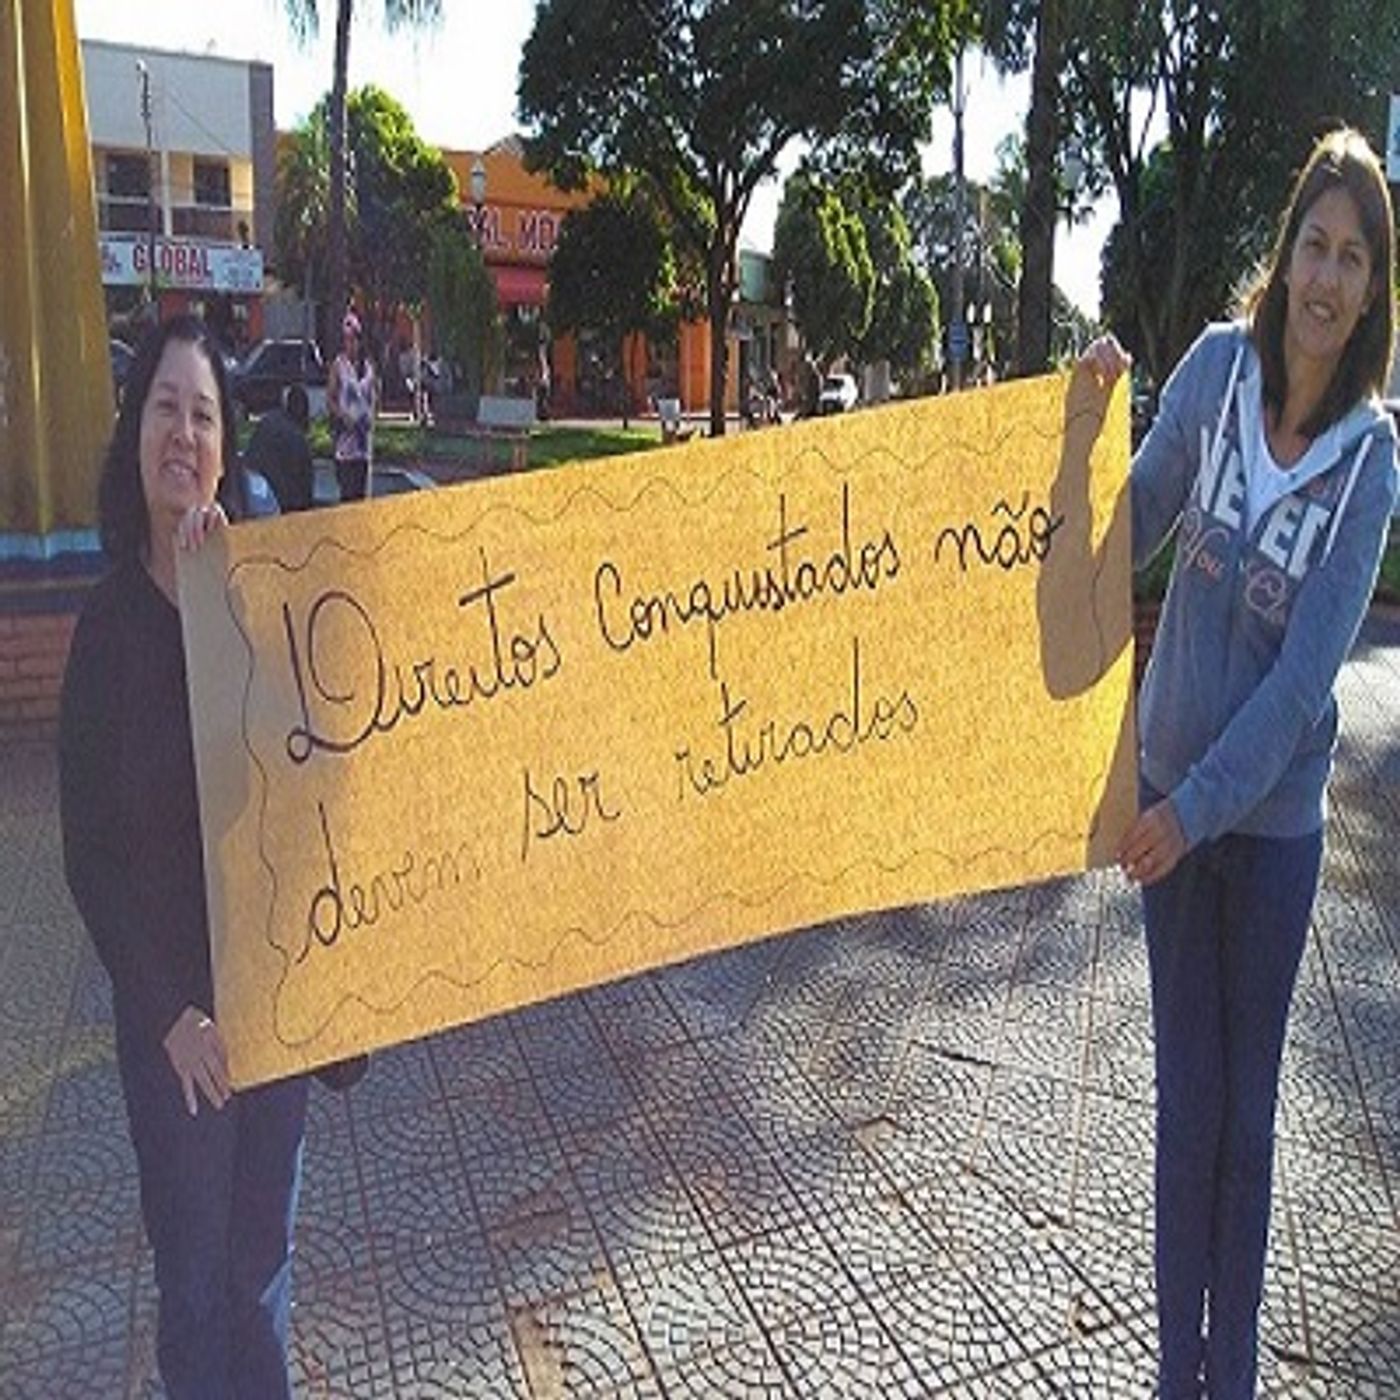 GLOBAL
Direitos Conquistados não
devem ser retirados